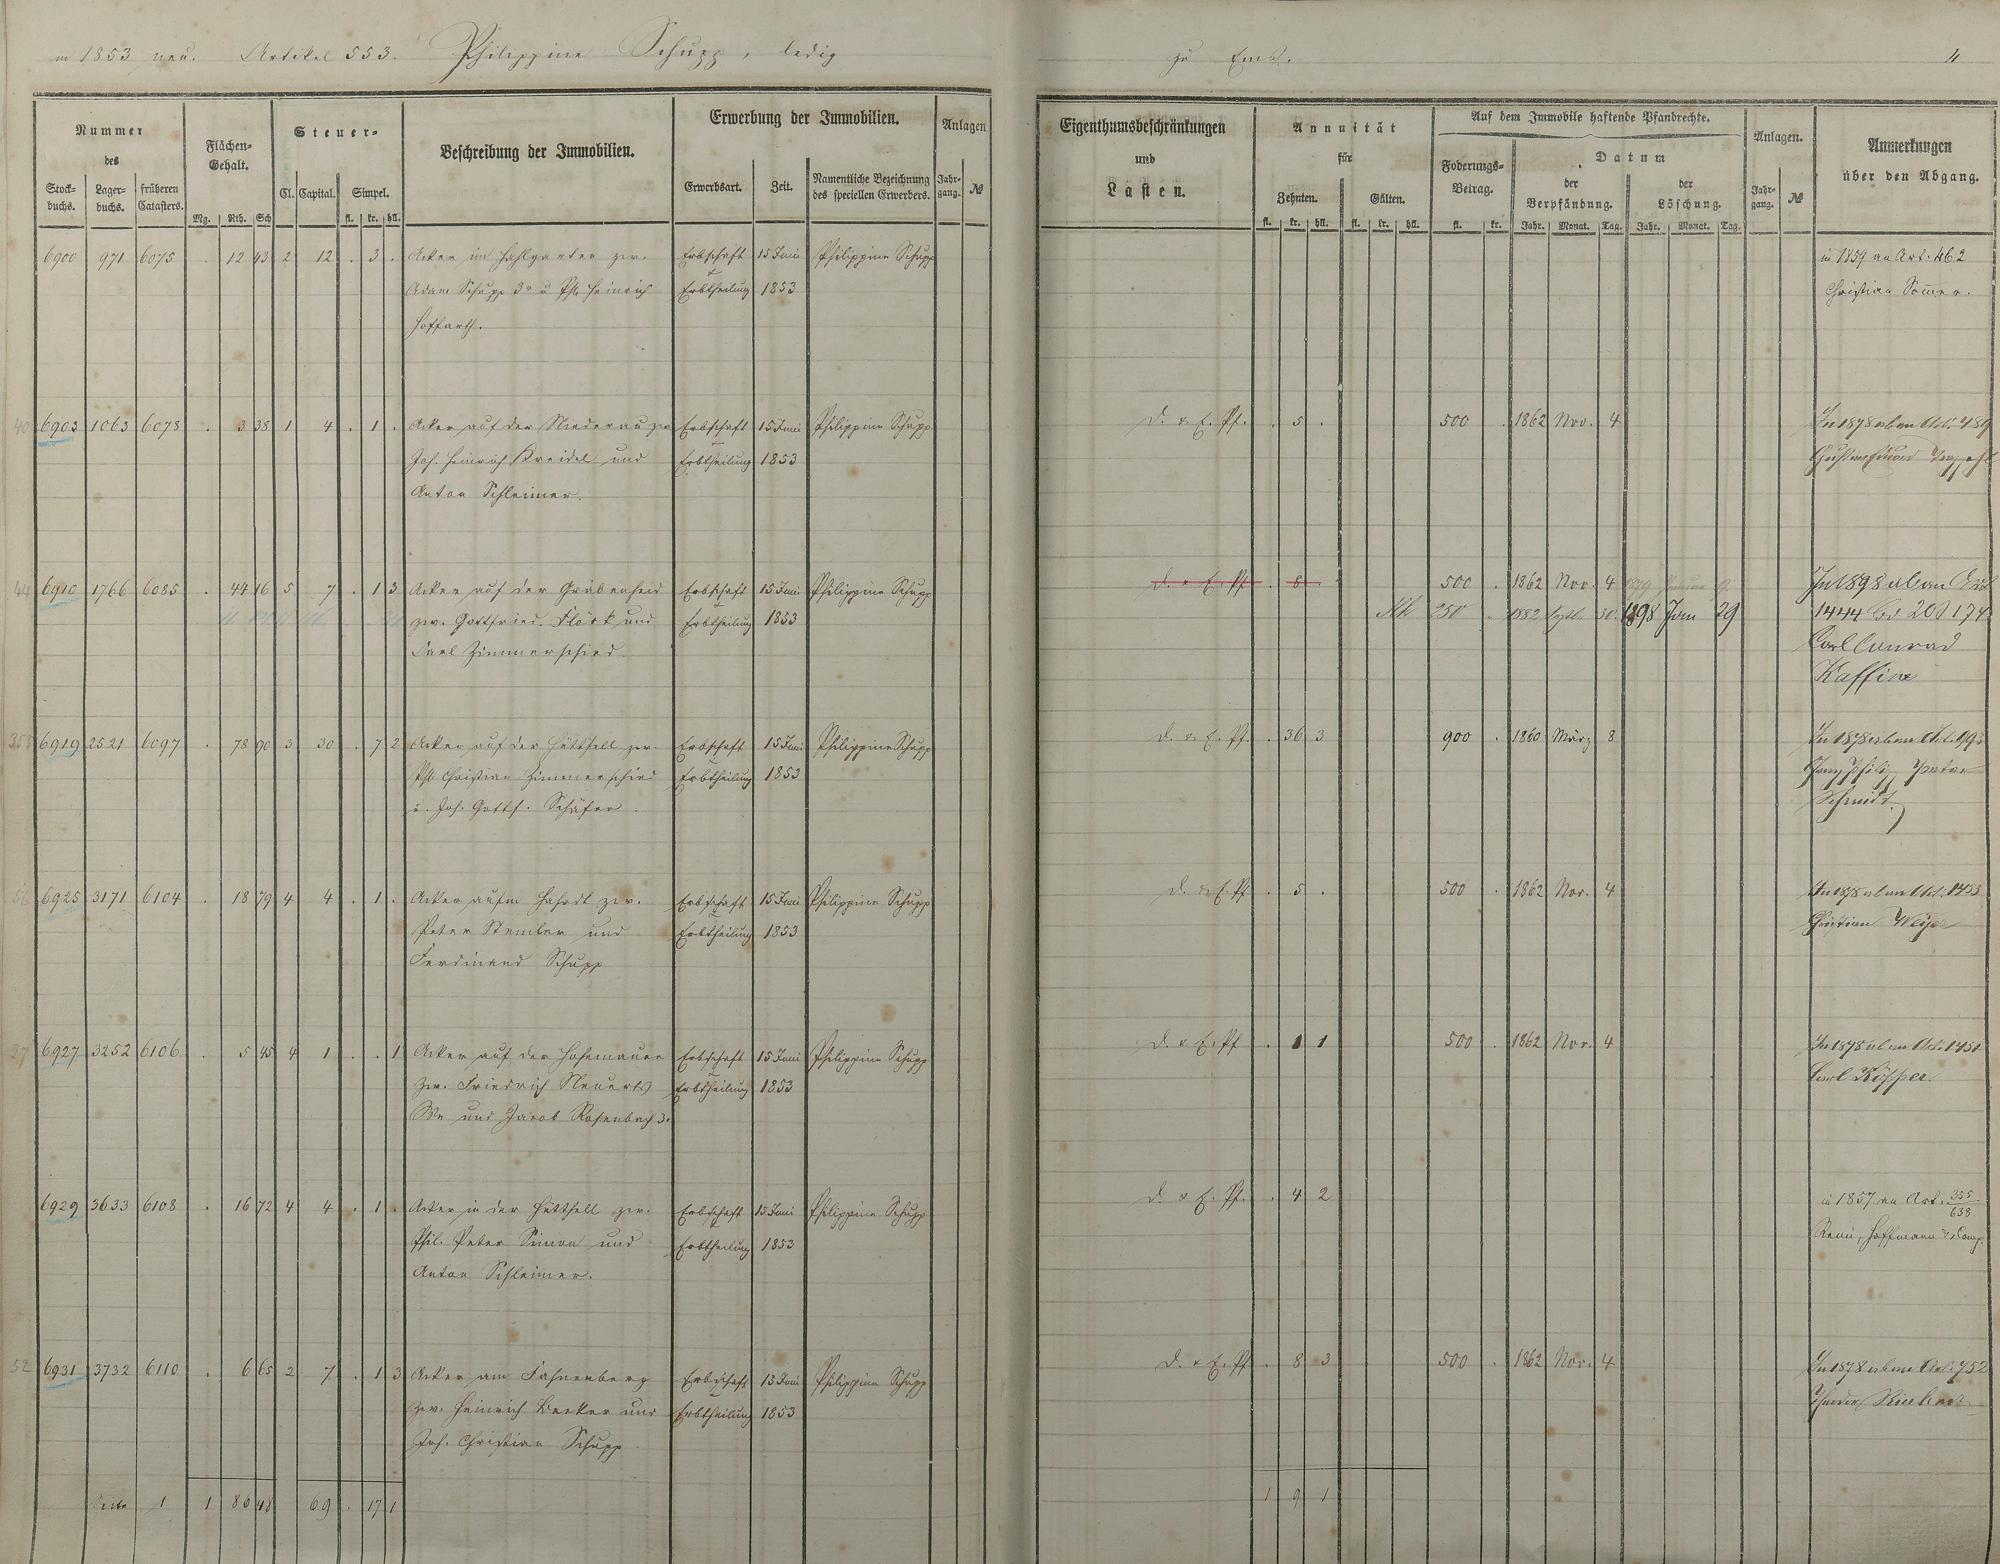 in 1853 neu. Artikel 553. Philippine Schupp, ledig zu Ems. 4
Nummer des
Stock-buchs. Lager-buchs. früheren Catasters.
Flächen-Gehalt.
Mg. Rth. Sch
Steuer-
Cl. Capital. Simpel.
fl. kr. hll.
Beschreibung der Immobilien.
Erwerbung der Immobilien.
Erwerbsart. Zeit. Namentliche Bezeichnung des speciellen Erwerbers.
Anlagen
Jahr-gang. №
Eigenthumsbeschränkungen
und
Lasten.
Annuität
für
Zehnten. Gülten.
fl. kr. hll. fl. kr. hll.
Auf dem Immobile haftende Pfandrechte.
Foderungs-Betrag.
fl. kr.
Datum
der Verpfändung. der Löschung.
Jahr. Monat. Tag. Jahr. Monat. Tag.
Anlagen.
Jahr-gang. №
Anmerkungen
über den Abgang.
6900 971 6075 . 12 43 2 12 . 3 . Acker im Fahlgarten zw. Erbschaft 15 Juni Philippine Schupp in 1859 an Art. 462
Adam Schupp 3r u Phil Heinrich Erbtheilung 1853 Christian Sommer.
Hoffarth.
40 6903 1063 6078 . 3 38 1 4 . 1 . Acker auf der Niederau zw Erbschaft 15 Juni Philippine Schupp D. & E. Pf. . 5 . 500 . 1862 Nov. 4 In 1878 ab an Art. 489
Joh. Heinrich Kreidel und Erbtheilung 1853
Anton Schleimer.
44 6910 1766 6085 . 44 16 5 7 . 1 3 Acker auf der Grabenheid Erbschaft 15 Juni Philippine Schupp D. & E. Pf . 8 . 500 . 1862 Nov. 4 1879 Januar 9. In 1898 ab an Art
zw. Gottfried Flöck und Erbtheilung 1853 250 . 1882 Septb. 30. 1898 Jan 29 1444 Bd 20 S 174
Carl Zimmerschied. Carl Conrad
Kaffine
355 6919 2521 6097 . 78 90 3 30 . 7 2 Acker auf der Hüttfell zw. Erbschaft 15 Juni Philippine Schupp D. & E. Pf. . 36 3 900 . 1860 März 8 In 1878 ab an Art.
Phil Christian Zimmerschied Erbtheilung 1853 Philipp Peter
u. Joh. Gottf. Schäfer. Schmidt.
56 6925 3171 6104 . 18 79 4 4 . 1 . Acker aufm Hahrdt zw. Erbschaft 15 Juni Philippine Schupp D. & E. Pf . 5 . 500 . 1862 Nov. 4 In 1878 ab an Art. 1453
Peter Stemler und Erbtheilung 1853 Christian
Ferdinand Schupp
27 6927 3252 6106 . 5 45 4 1 . . 1 Acker auf der Hohemauer Erbschaft 15 Juni Philippine Schupp D. & E. Pf . 1 1 500 . 1862 Nov. 4 In 1878 ab an Art. 1451
zw. Friedrich Neuerts Erbtheilung 1853 Carl
We und Jacob Rosenbach 3r
6929 3633 6108 . 16 72 4 4 . 1 . Acker in der Hüttfell zw. Erbschaft 15 Juni Philippine Schupp D. & E. Pf. . 4 2 in 1857 an Art. 355/638
Phil. Peter Simon und Erbtheilung 1853 Remi, Hoffmann & Comp.
Anton Schleimer.
52 6931 3732 6110 . 6 65 2 7 . 1 3 Acker am Fahnenberg Erbschaft 15 Juni Philippine Schupp D. & E. Pf . 8 3 500 . 1862 Nov. 4 In 1878 ab an Art. 752
zw. Heinrich Becker und Erbtheilung 1853 Theodor
Joh. Christian Schupp
Seite 1 1 86 48 69 . 17 1 1 9 1